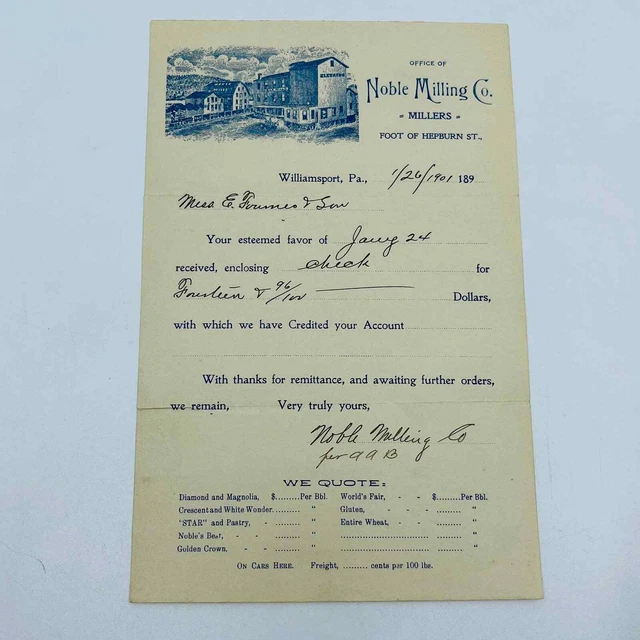 ELEVATOR
OFFICE OF
Noble Milling Co.
MILLERS
FOOT OF HEPBURN ST.,
Williamsport, Pa., 1/26/1901 189
Mess E. & Son
Your esteemed favor of Jany 24
received, enclosing check for
Fourteen & 96/100 Dollars,
with which we have Credited your Account
With thanks for remittance, and awaiting further orders,
we remain, Very truly yours,
Noble Milling Co
per
WE QUOTE:
Diamond and Magnolia, $.........Per Bbl. World's Fair, - - $.........Per Bbl.
Crescent and White Wonder.......... " Gluten, - - - ......... "
"STAR" and Pastry, - ......... " Entire Wheat, - - ......... "
Noble's Best, - - ......... " "
Golden Crown, - - ......... " "
ON CARS HERE. Freight, ......... cents per 100 lbs.